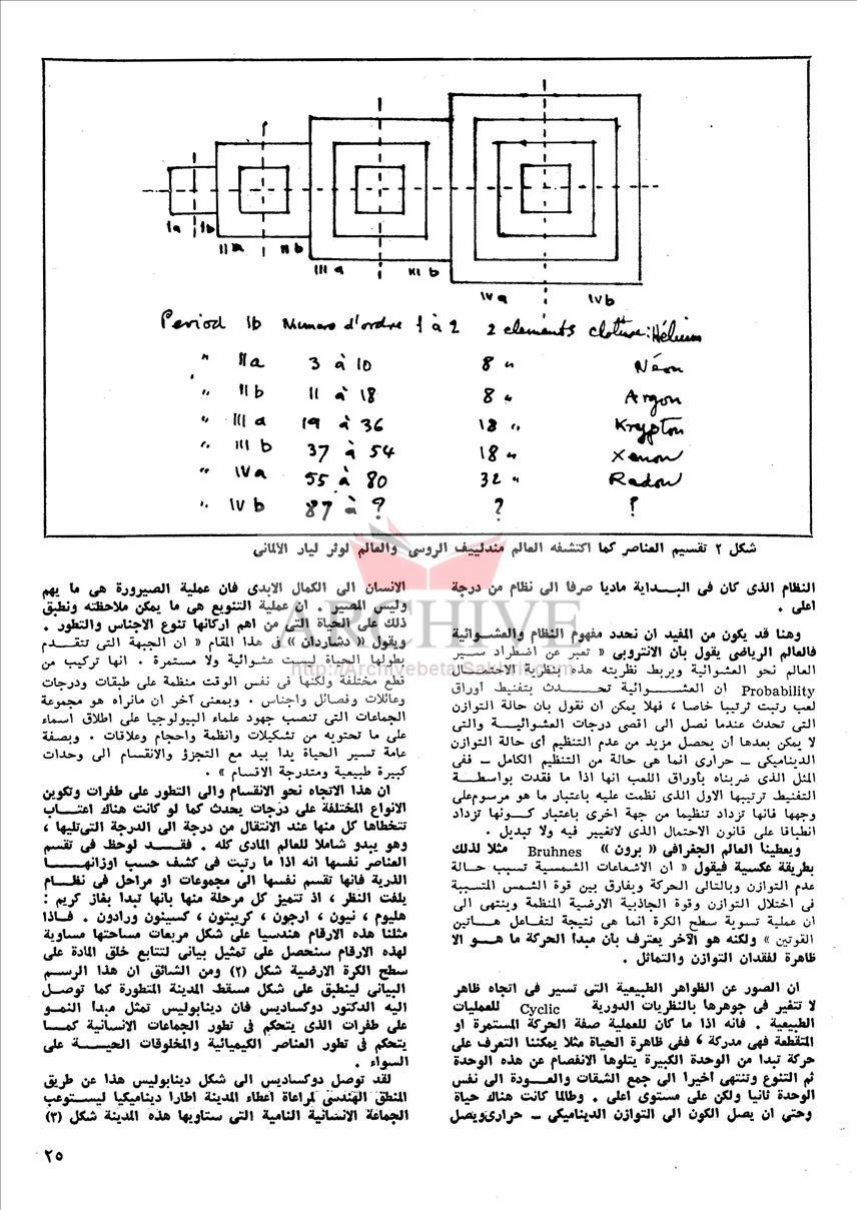 Ia Ib
IIa IIb
IIIa IIIb
IVa IVb
Period Ib Numero d'ordre 1 à 2 2 elements cloture: Hélium
" IIa 3 à 10 8 " Néon
" IIb 11 à 18 8 " Argon
" IIIa 19 à 36 18 " Krypton
" IIIb 37 à 54 18 " Xenon
" IVa 55 à 80 32 " Radon
" IVb 87 à ? ? ?
شكل ٢ تقسيم العناصر كما اكتشفه العالم مندلييف الروسى والعالم لوثر ليار الالمانى
ARCHIVE
النظام الذى كان فى البـــداية ماديا صرفا الى نظام من درجة
اعلى .
وهنا قد يكون من المفيد ان نحدد مفهوم النظام والعشــوائية
فالعالم الرياضى يقول بأن الانتروبى « تعبر عن اضطراد ســير
العالم نحو العشوائية ويربط نظريته هذه بنظرية الاحتمـــال
Probability ان العشـــوائية تحـــدث بتفنيط أوراق
لعب رتبت ترتيبا خاصا ، فهلا يمكن ان نقول بان حالة التوازن
التى تحدث عندما نصل الى اقصى درجات العشـوائيـــة والتى
لا يمكن بعدها أن يحصل مزيد من عدم التنظيم أى حالة التوازن
الديناميكى ـ حرارى انما هى حالة من التنظيم الكامل ـ ففى
المثل الذى ضربناه بأوراق اللعب انها اذا ما فقدت بواسطـــة
التفنيط ترتيبها الاول الذى نظمت عليه باعتبار ما هو مرسوم على
وجهها فانها تزداد تنظيما من جهة اخرى باعتبار كـــونها تزداد
انطباقا على قانون الاحتمال الذى لاتغيير فيه ولا تبديل .
ويعطينا العالم الجغرافى « برون » Bruhnes مثلا لذلك
بطريقة عكسية فيقول « ان الاشعاعات الشمسية تسبب حـــالة
عدم التوازن وبالتالى الحركة ويفارق بين قوة الشمس المتسببة
فى اختلال التوازن وقوة الجاذبية الارضية المنظمة وينتهى الى
ان عملية تسوية سطح الكرة انما هى نتيجة لتفـاعل هـــاتين
القوتين » ولكنه هو الآخر يعترف بأن مبدأ الحركة ما هـــو الا
ظاهرة لفقدان التوازن والتماثل .
ان الصور عن الظواهر الطبيعية التى تسير فى اتجاه ظاهر
لا تتغير فى جوهرها بالنظريات الدورية Cyclic للعمليات
الطبيعية . فانه اذا ما كان للعملية صفة الحركة المستمرة او
المتقطعة فهى مدركة ، ففى ظاهرة الحياة مثلا يمكننا التعرف على
حركة تبدا من الوحدة الكبيرة يتلوها الانفصام عن هذه الوحدة
ثم التنوع وتنتهى اخيرا الى جمع الشقات والعـــودة الى نفس
الوحدة ثانيا ولكن على مستوى اعلى . وطالما كانت هناك حياة
وحتى ان يصل الكون الى التوازن الديناميكى ـ حرارى ويصل
الانسان الى الكمال الابدى فان عملية الصيرورة هى ما يهم
وليس المصير . ان عملية التنويع هى ما يمكن ملاحظته ونطبق
ذلك على الحياة التى من اهم اركانها تنوع الاجناس والتطور .
ويقول « دشاردان » فى هذا المقام « ان الجبهة التى تتقـــدم
بطولها الحياة ليست عشوائية ولا مستمرة . انها تركيب من
قطع مختلفة ولكنها فى نفس الوقت منظمة على طبقات ودرجات
وعائلات وفصائل واجناس . وبمعنى آخر ان مانراه هو مجموعة
الجماعات التى تنصب جهود علماء البيولوجيا على اطلاق اسماء
على ما تحتويه من تشكيلات وانظمة واحجام وعلاقات . وبصفة
عامة تسير الحياة يدا بيد مع التجزؤ والانقسام الى وحدات
كبيرة طبيعية ومتدرجة الاقسام » .
ان هذا الاتجاه نحو الانقسام والى التطور على طفرات وتكوين
الانواع المختلفة على درجات يحدث كما لو كانت هناك اعتـــاب
تتخطاها كل منها عند الانتقال من درجة الى الدرجة التى تليها ،
وهو يبدو شاملا للعالم المادى كله . فقـــد لوحظ فى تقسم
العناصر نفسها انه اذا ما رتبت فى كشف حسب اوزانهـــا
الذرية فانها تقسم نفسها الى مجموعات او مراحل فى نظـــام
يلفت النظر ، اذ تتميز كل مرحلة منها بأنها تبدا بغاز كريم :
هليوم ، نيون ، ارجون ، كريبتون ، كسينون ورادون . فـــاذا
مثلنا هذه الارقام هندسيا على شكل مربعات مساحتها مساوية
لهذه الارقام سنحصل على تمثيل بيانى لتتابع خلق المادة على
سطح الكرة الارضية شكل (٢) ومن الشائق ان هذا الرســـم
البيانى لينطبق على شكل مسقط المدينة المتطورة كما توصـــل
اليه الدكتور دوكساديس فان دينابوليس تمثل مبدأ النمـــو
على طفرات الذى يتحكم فى تطور الجماعات الانسانية كمـــا
يتحكم فى تطور العناصر الكيميائية والمخلوقات الحيـــة على
السواء .
لقد توصل دوكساديس الى شكل دينابوليس هذا عن طريق
المنطق الهندسى لمراعاة اعطاء المدينة اطارا ديناميكيا ليســتوعب
الجماعة الانسانية النامية التى ستأويها هذه المدينة شكل (٣)
٢٥